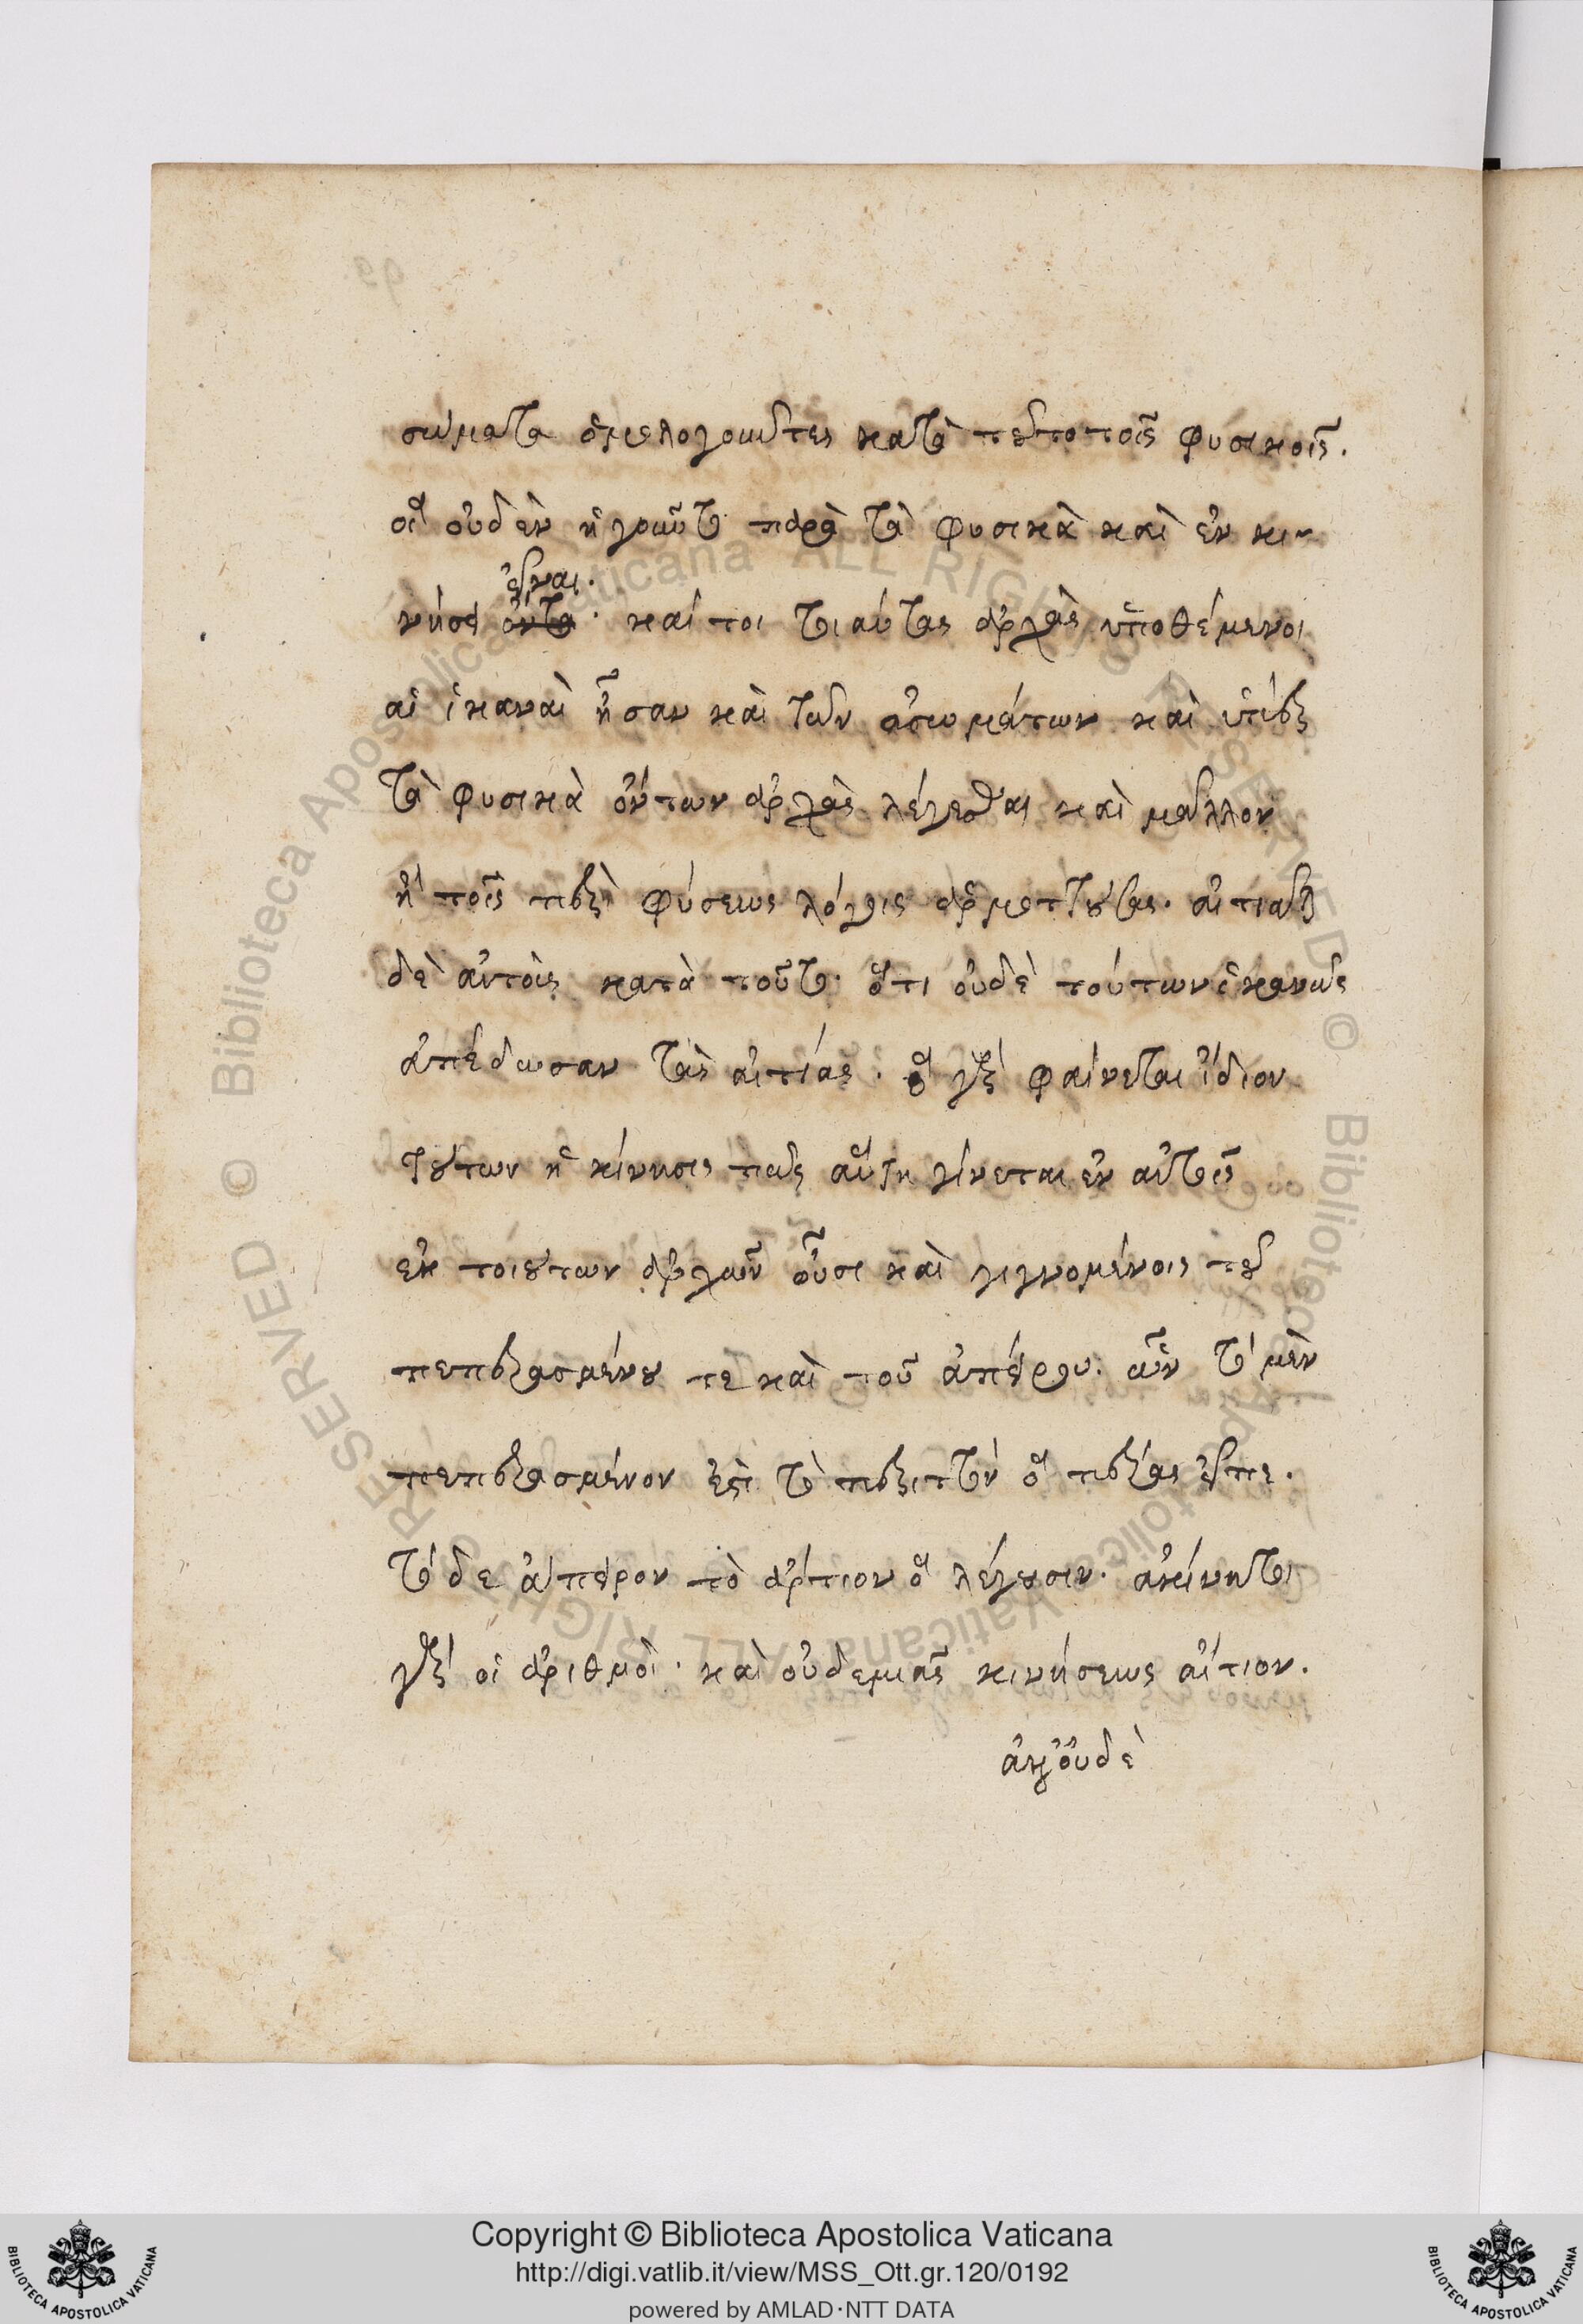 σώματα ὁμολογοῦντες κατὰ τοῦτο τοῖς φυσικοῖς.
οἳ οὐδὲν ἡγοῦντο παρὰ τὰ φυσικὰ καὶ ἐν κι-
εἶναι.
νήσει ὄντα· καί τοι τοιαύτας ἀρχὰς ὑποθέμενοι
αἳ ἱκαναὶ ἦσαν καὶ τῶν ἀσωμάτων καὶ ὑπὲρ
τὰ φυσικὰ ὄντων ἀρχὰς λέγεσθαι καὶ μᾶλλον
ἢ τοῖς περὶ φύσεως λόγοις ἁρμοττούσας. αἰτιᾶται
δὲ αὐτοὺς κατὰ τοῦτο· ὅτι οὐδὲ τούτων ἱκανῶς
ἀπέδωσαν τὰς αἰτίας. ὃ γὰρ φαίνεται ἴδιον
τούτων ἡ κίνησις πῶς αὕτη γίνεται ἐν αὐτοῖς
ἐκ τοιούτων ἀρχῶν οὖσι καὶ γιγνομένοις τοῦ
πεπερασμένου τε καὶ τοῦ ἀπείρου. ὧν τὸ μὲν
πεπερασμένον ἐστὶ τὸ περιττὸν ὃ πέρας εἶπε.
τὸ δὲ ἄπειρον τὸ ἄρτιον ὃ λέγουσιν. ἀκίνητοι
γὰρ οἱ ἀριθμοὶ. καὶ οὐδεμιᾶς κινήσεως αἴτιον.
ἀλλ' οὐδὲ
Copyright © Biblioteca Apostolica Vaticana
http://digi.vatlib.it/view/MSS_Ott.gr.120/0192
powered by AMLAD·NTT DATA